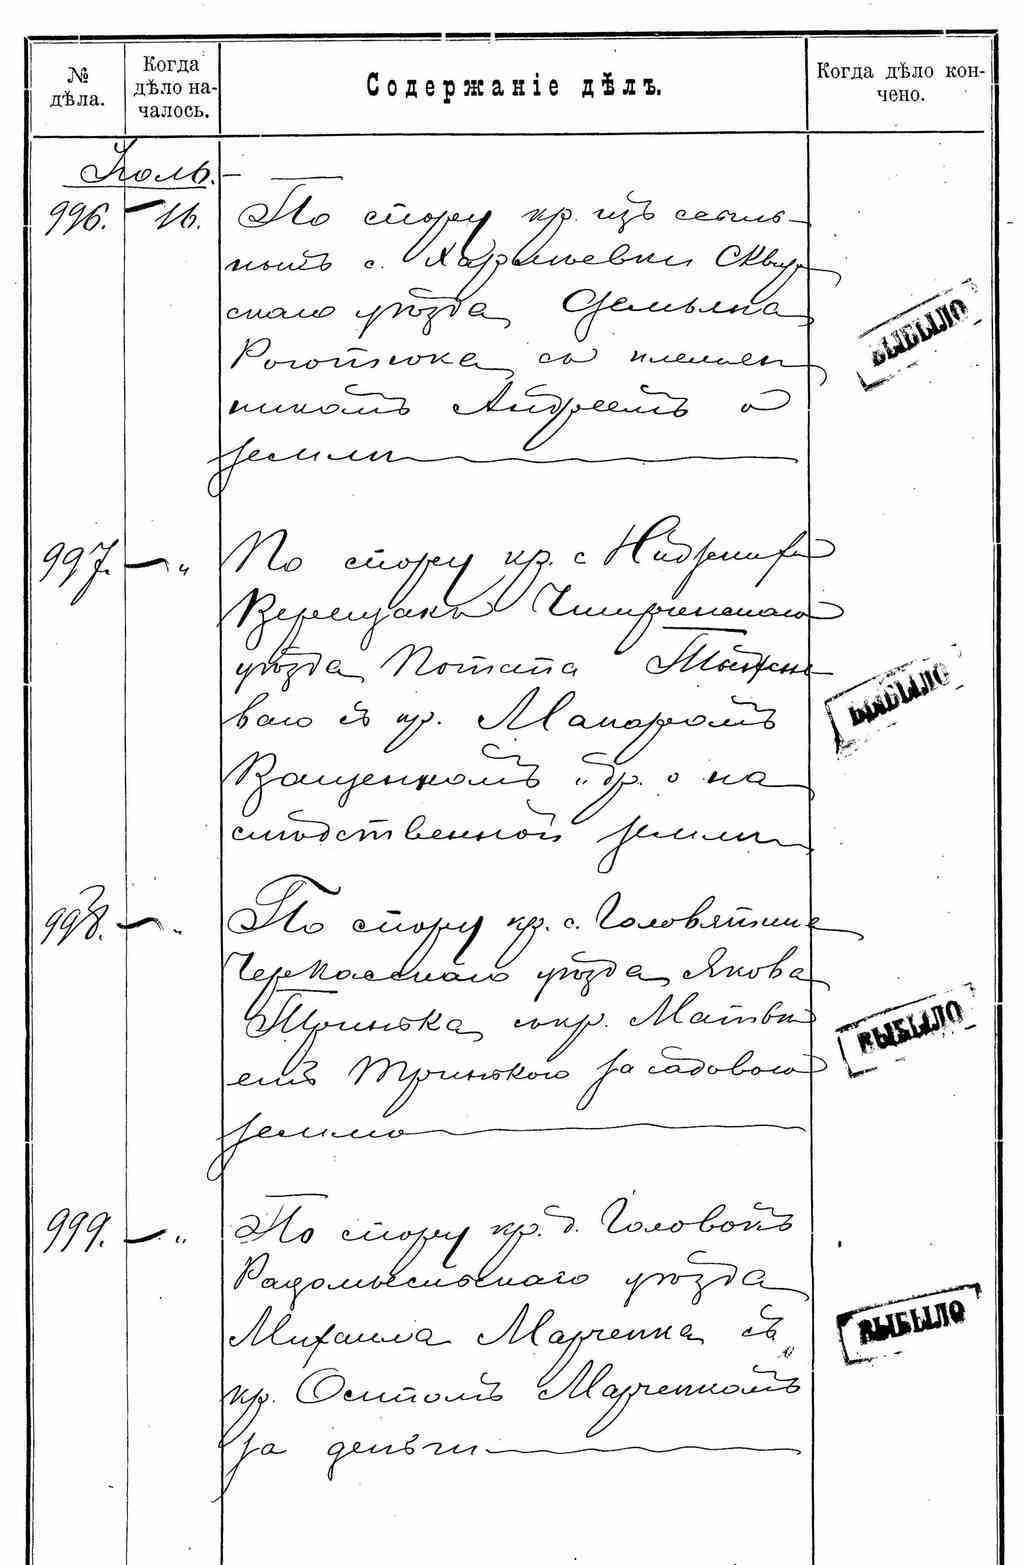 № дѣла.
Когда дѣло началось.
Содержаніе дѣлъ.
Когда дѣло кончено.
Іюль.
996. 16. По спору кр. изъ ссыль-
ныхъ с. Сквир-
скаго уѣзда Демьяна
Роготюка съ племен
никомъ Андреемъ о
земли
997. — " По спору кр. с.
Верещакъ Чигиринскаго
уѣзда Потапа
ваго съ кр. Макаромъ
Ващенкомъ и др. о на
слѣдственной земли
998. — " По спору кр. с. Головятина
Черкасскаго уѣзда Якова
Тринька съ кр. Матвѣ
емъ Тринькою за садовую
землю
999. — " По спору кр. д. Головокъ
Радомысльскаго уѣзда
Михаила Марченка съ
кр. Осипомъ Марченкомъ
за деньги
ВЫБЫЛО
ВЫБЫЛО
ВЫБЫЛО
ВЫБЫЛО